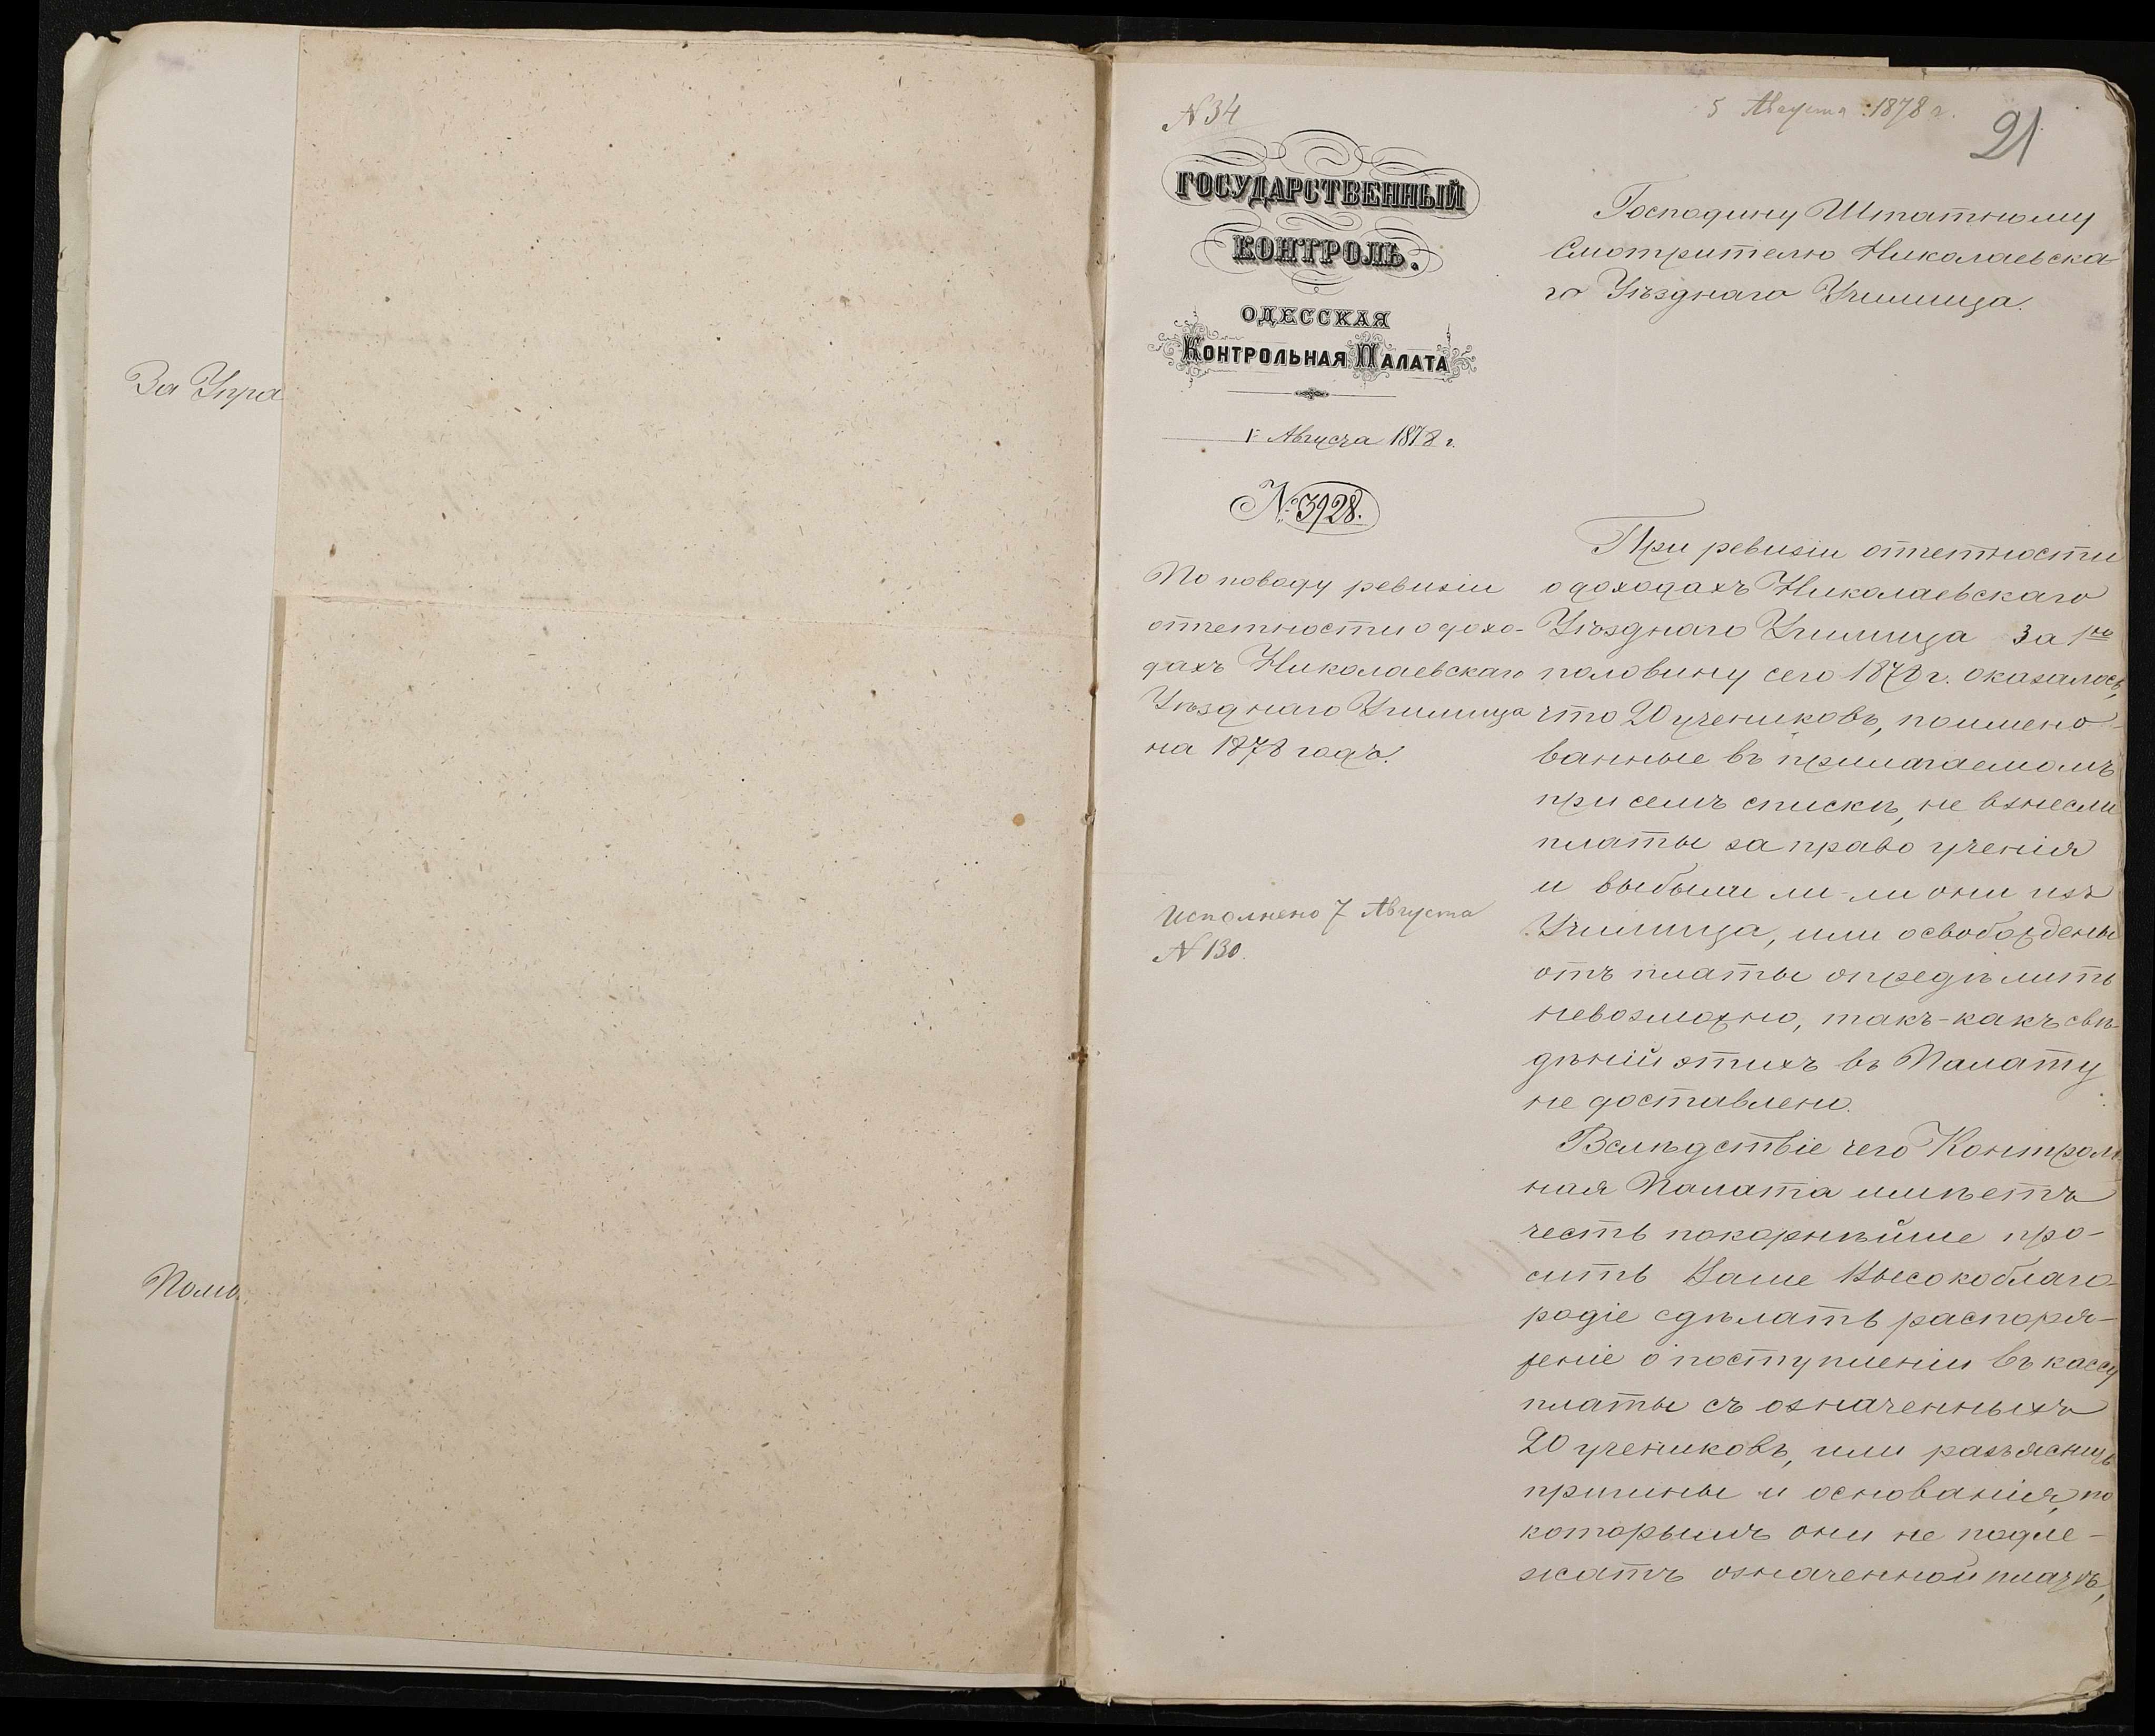 За Упра
Помо
N 34
5 Августа 1878 г.
21
ГОСУДАРСТВЕННЫЙ
КОНТРОЛЬ.
ОДЕССКАЯ
КОНТРОЛЬНАЯ ПАЛАТА
1 Августа 1878 г.
№ 3928.
По поводу ревизіи
отчетности о дохо-
дахъ Николаевскаго
Уѣзднаго Училища
на 1878 годъ.
Исполнено 7 Августа
N 130.
Господину Штатному
Смотрителю Николаевска
го Уѣзднаго Училища.
При ревизіи отчетности
о доходахъ Николаевскаго
Уѣзднаго Училища за 1ую
половину сего 1878 г. оказалось,
что 20 учениковъ, поимено-
ванные въ прилагаемомъ
при семъ спискѣ, не взнесли
платы за право ученія
и выбыли ли-ли они изъ
Училища, или освобождены
отъ платы опредѣлить
невозможно, такъ-какъ свѣ-
дѣній этихъ въ Палату
не доставлено.
Вслѣдствіе чего Контроль
ная Палата имѣетъ
честь покорнѣйше про-
сить Ваше Высокоблаго-
родіе сдѣлать распоря-
женіе о поступленіи въ кассу
платы съ означенныхъ
20 учениковъ, или разъяснить
причины и основанія, по
которымъ они не подле-
жатъ означенной платѣ,